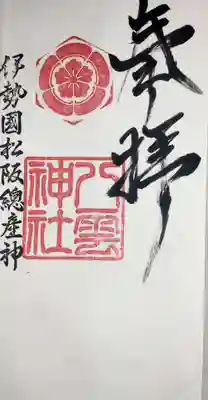 奉拝
八雲神社
伊勢國松阪總産神